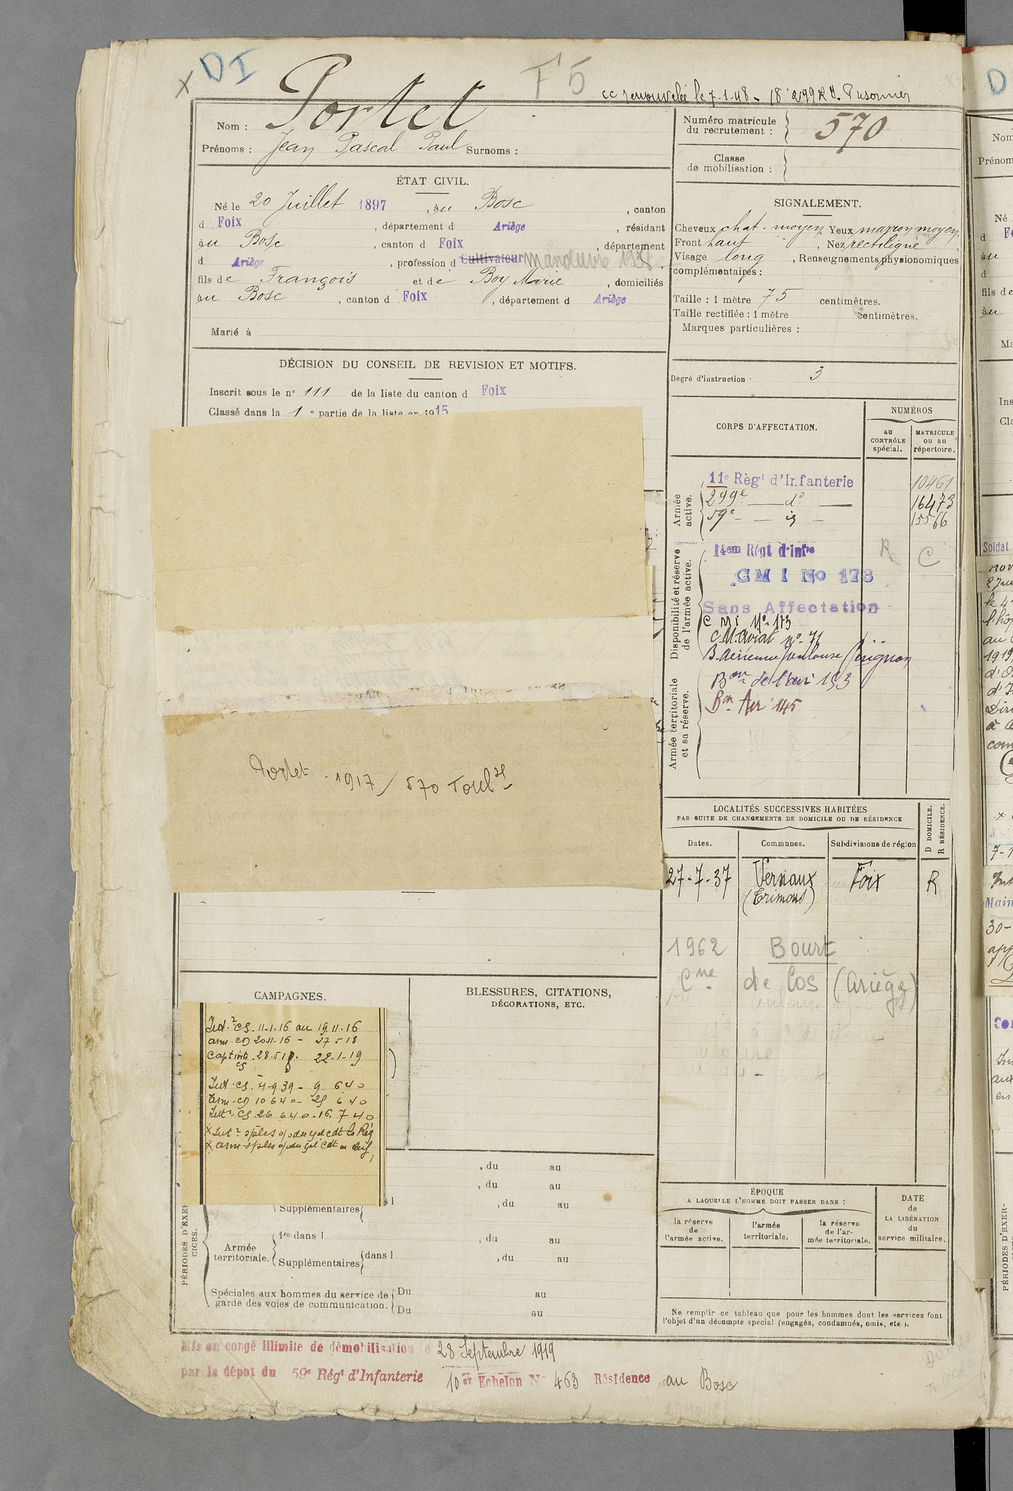 DI
F5
Portet
Nom :
Prénoms : Jean Pascal Paul Surnoms :
Numéro matricule du recrutement : 570
Classe de mobilisation :
ÉTAT CIVIL.
Né le 20 Juillet 1897, au Bosc, canton
d Foix, département d Ariège, résidant
au Bosc, canton d Foix, département
d Ariège, profession d Cultivateur manœuvre
fils de François et de Boy Marie, domiciliés
au Bosc, canton d Foix, département d Ariège
Marié à
SIGNALEMENT.
Cheveux chat. moyen Yeux marron moyen,
Front haut, Nez rectiligne
Visage long, Renseignements physionomiques
complémentaires :
Taille : 1 mètre 75 centimètres.
Taille rectifiée : 1 mètre centimètres.
Marques particulières :
Degré d'instruction 3
DÉCISION DU CONSEIL DE REVISION ET MOTIFS.
Inscrit sous le n° 111 de la liste du canton d Foix
Classé dans la 1e partie de la liste en 1915
Portet 1917 / 570 Toulse
CORPS D'AFFECTATION.
NUMÉROS
au CONTRÔLE spécial.
MATRICULE ou au répertoire.
Armée active.
11e Régt d'Infanterie 10461
299e do 16473
59e 15566
Disponibilité et réserve de l'armée active.
14em Régt d'Infie R C
CMI No 173
Sans Affectation
C M i No 173
B. Aérienne Toulouse
Armée territoriale et sa réserve.
Bon de l'air 153
Bon Air 145
LOCALITÉS SUCCESSIVES HABITÉES
PAR SUITE DE CHANGEMENTS DE DOMICILE OU DE RÉSIDENCE
D DOMICILE.
R RÉSIDENCE.
Dates. Communes. Subdivisions de région
27-7-37 Vernaux Foix R
1962 Bourt
Cne de Cos (Ariège)
CAMPAGNES.
Intre CS. 11-1-16 au 19 11-16
arm. CD 20 11-16 - 27 5 18
Captivité 28.5.18 - 22-1-19
CS
Intre CS. 4-9 39 - 9. 6 40
arm. CD 10 6 40 - 25 6 40
Intre CS. 26 6 40 - 16. 7 40
BLESSURES, CITATIONS,
DÉCORATIONS, ETC.
PÉRIODES D'EXERCICES.
, du au
, du au
Supplémentaires , du au
Armée territoriale.
1re dans l , du au
Supplémentaires dans l , du au
Spéciales aux hommes du service de garde des voies de communication.
Du au
Du au
ÉPOQUE
A LAQUELLE L'HOMME DOIT PASSER DANS :
la réserve de l'armée active.
l'armée territoriale.
la réserve de l'armée territoriale.
DATE de LA LIBÉRATION du service militaire.
Ne remplir ce tableau que pour les hommes dont les services font
l'objet d'un décompte spécial (engagés, condamnés, omis, etc.).
Mis en congé illimité de démobilisation le 23 Septembre 1919
par le dépôt du 59e Régt d'Infanterie 10er Echelon No 463 Résidence au Bosc